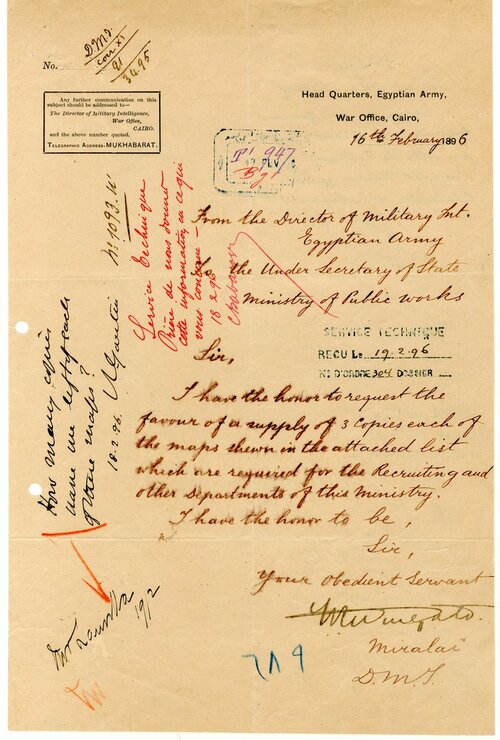 No. D.M.I
corr XI
91
34.95
Any further communication on this
subject should be addressed to—
The Director of Military Intelligence,
War Office,
CAIRO.
and the above number quoted.
TELEGRAPHIC ADDRESS: MUKHABARAT.
Head Quarters, Egyptian Army,
War Office, Cairo,
16th February 1896
947
From the Director of Military Int.
Egyptian Army
To the Under Secretary of State
Ministry of Public works
SERVICE TECHNIQUE
RECU Le 19.2.96
No D'ORDRE 304 DOSSIER
Sir,
I have the honor to request the
favour of a supply of 3 Copies each of
the maps shewn in the attached list
which are required for the Recruiting and
other Departments of this Ministry.
I have the honor to be,
Sir,
Your Obedient Servant
Miralai
D.M.I.
No 1093.W
Service Technique
Prière de nous donner
cette information en ce qui
vous concerne
18 2.96
How many copies
have we left of each
of these maps?
18.2.96
19/2
٩٧٦